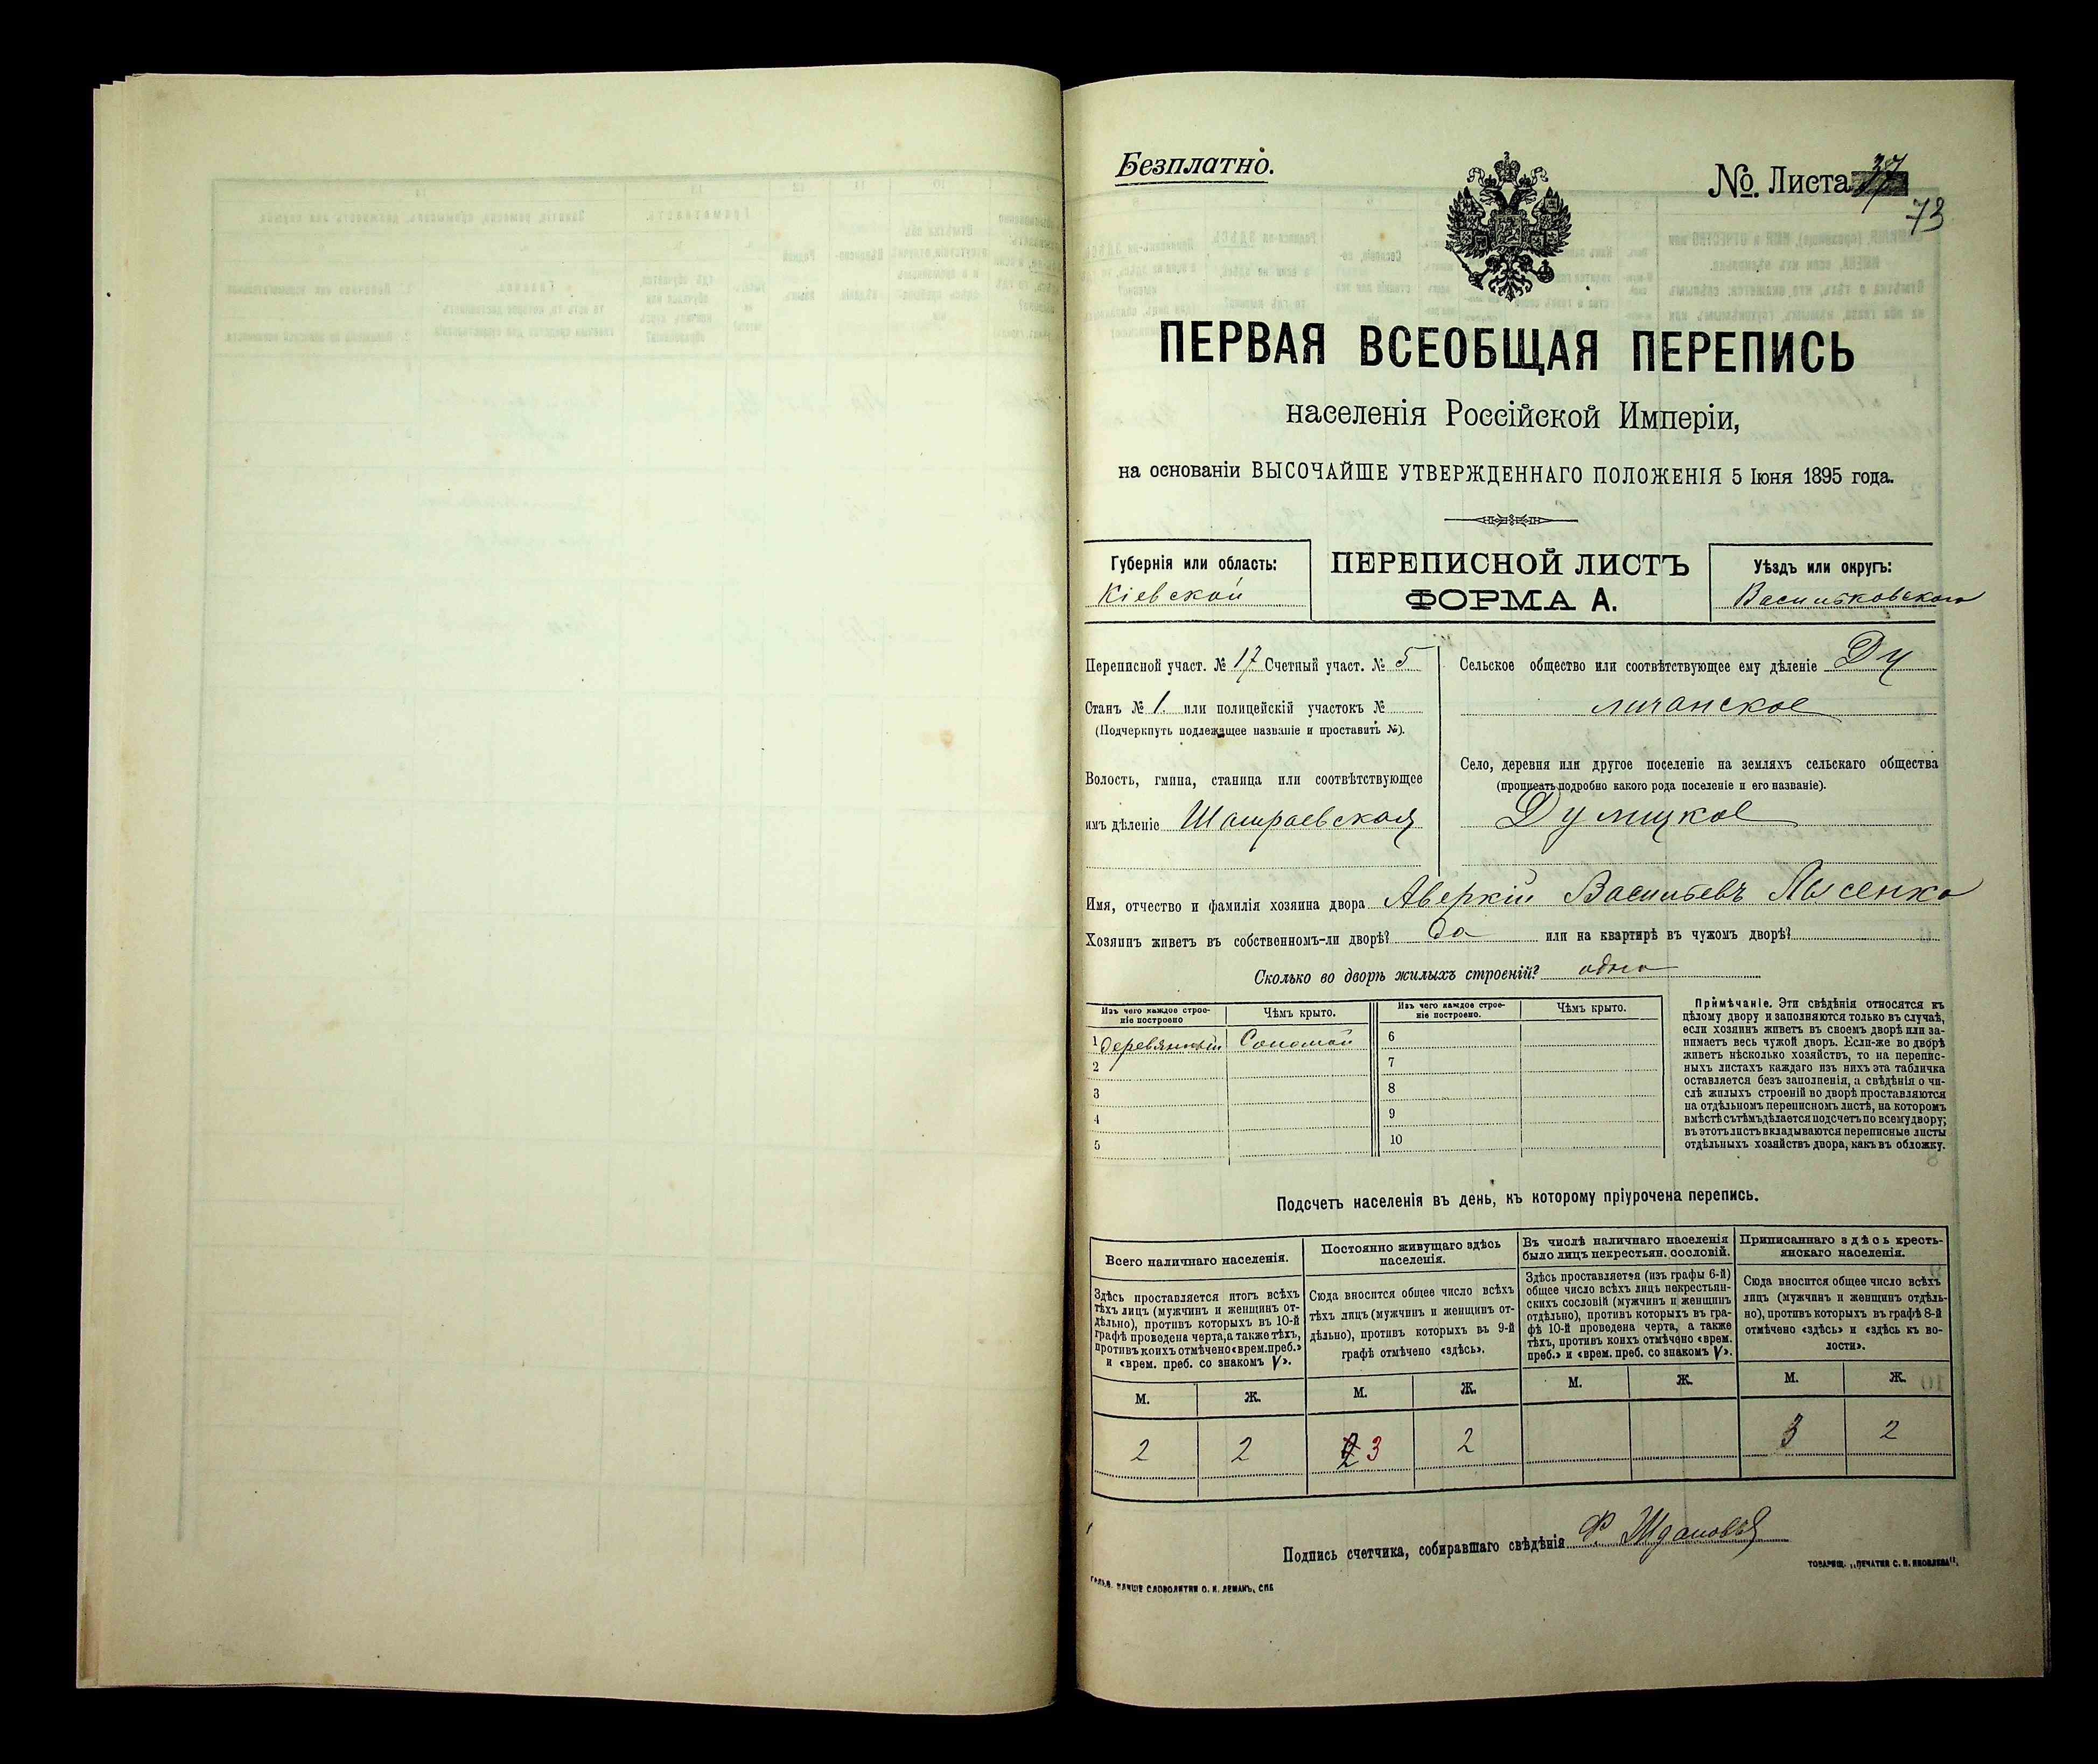 Безплатно.
№. Листа 37
73
ПЕРВАЯ ВСЕОБЩАЯ ПЕРЕПИСЬ
населенія Россійской Имперіи,
на основаніи ВЫСОЧАЙШЕ УТВЕРЖДЕННАГО ПОЛОЖЕНІЯ 5 Іюня 1895 года.
Губернія или область:
Кіевской
ПЕРЕПИСНОЙ ЛИСТЪ
ФОРМА А.
Уѣздъ или округъ:
Васильковскаго
Переписной участ. № 17 Счетный участ. № 5
Станъ № 1. или полицейскій участокъ №
(Подчеркнуть подлежащее названіе и проставить №).
Волость, гмина, станица или соотвѣтствующее
имъ дѣленіе Шамраевская
Сельское общество или соотвѣтствующее ему дѣленіе Ду
личанское
Село, деревня или другое поселеніе на земляхъ сельскаго общества
(прописать подробно какого рода поселеніе и его названіе).
Дулицкое
Имя, отчество и фамилія хозяина двора Аверкій Васильевъ Лысенко
Хозяинъ живетъ въ собственномъ-ли дворѣ? да или на квартирѣ въ чужомъ дворѣ?
Сколько во дворѣ жилыхъ строеній? одно
Изъ чего каждое строе-
ніе построено
Чѣмъ крыто.
Изъ чего каждое строе-
ніе построено.
Чѣмъ крыто.
1 деревянный Соломой 6
2 7
3 8
4 9
5 10
Примѣчаніе. Эти свѣдѣнія относятся къ
цѣлому двору и заполняются только въ случаѣ,
если хозяинъ живетъ въ своемъ дворѣ или за-
нимаетъ весь чужой дворъ. Если-же во дворѣ
живетъ нѣсколько хозяйствъ, то на перепис-
ныхъ листахъ каждаго изъ нихъ эта табличка
оставляется безъ заполненія, а свѣдѣнія о чи-
слѣ жилыхъ строеній во дворѣ проставляются
на отдѣльномъ переписномъ листѣ, на которомъ
вмѣстѣ съ тѣмъ дѣлается подсчетъ по всему двору;
въ этотъ листъ вкладываются переписные листы
отдѣльныхъ хозяйствъ двора, какъ въ обложку.
Подсчетъ населенія въ день, къ которому пріурочена перепись.
Всего наличнаго населенія.
Здѣсь проставляется итогъ всѣхъ
тѣхъ лицъ (мужчинъ и женщинъ от-
дѣльно), противъ которыхъ въ 10-й
графѣ проведена черта, а также тѣхъ,
противъ коихъ отмѣчено «врем. преб.»
и «врем. преб. со знакомъ V».
Постоянно живущаго здѣсь
населенія.
Сюда вносится общее число всѣхъ
тѣхъ лицъ (мужчинъ и женщинъ от-
дѣльно), противъ которыхъ въ 9-й
графѣ отмѣчено «здѣсь».
Въ числѣ наличнаго населенія
было лицъ некрестьян. сословій.
Здѣсь проставляется (изъ графы 6-й)
общее число всѣхъ лицъ некрестьян-
скихъ сословій (мужчинъ и женщинъ
отдѣльно), противъ которыхъ въ гра-
фѣ 10-й проведена черта, а также
тѣхъ, противъ коихъ отмѣчено «врем.
преб.» и «врем. преб. со знакомъ V».
Приписаннаго здѣсь кресть-
янскаго населенія.
Сюда вносится общее число всѣхъ
лицъ (мужчинъ и женщинъ отдѣль-
но), противъ которыхъ въ графѣ 8-й
отмѣчено «здѣсь» и «здѣсь къ во-
лости».
М. Ж. М. Ж. М. Ж. М. Ж.
2 2 2 3 2 3 2
Подпись счетчика, собиравшаго свѣдѣнія Ф. Ждановъ
СЛОВОЛИТНИ О. И. ЛЕМАНЪ, СПБ
ТОВАРИЩ. „ПЕЧАТНЯ С. П. ЯКОВЛЕВА".